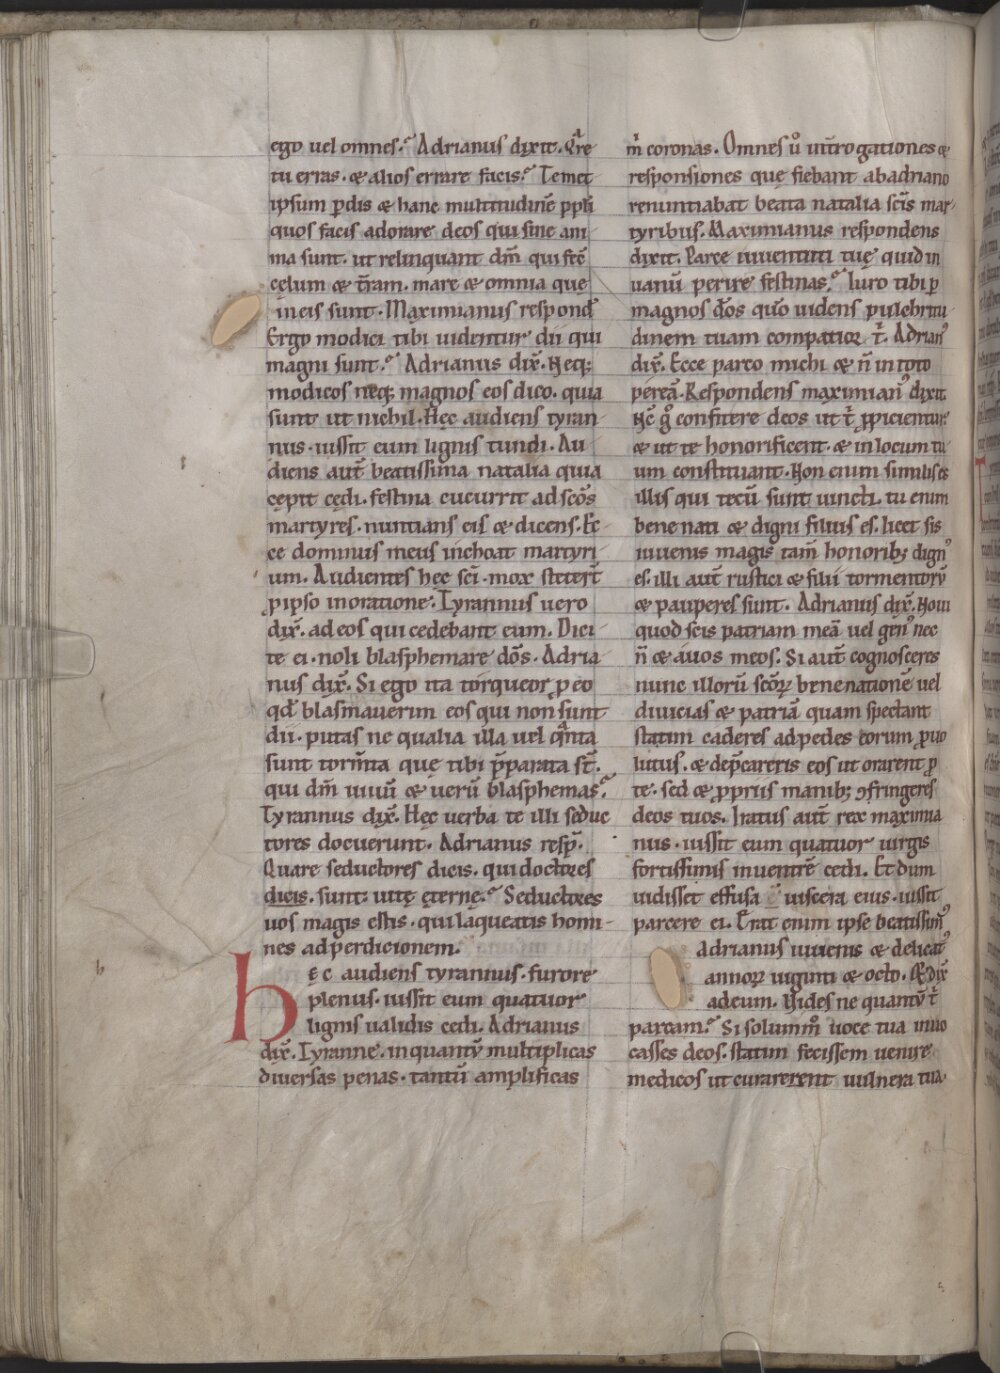 ego uel omnes. Adrianus dixit. Qͣre
tu erras. & alios errare facis. Temet
ipsum ꝑdis & hanc multitudinē ppłi
quos facis adorare deos qui sine ani
ma sunt. ut relinquant dm̄ qui fēc
cęlum & t̄ram. mare & omnia quę
in eis sunt. Maximianus respond̄
Ergo modici tibi uidentur dii qui
magni sunt. Adrianus dix̄. Neq;
modicos neq; magnos eos dico. quia
sunt ut nichil. Hęc audiens tyran
nus. iussit eum lignis tundi. Au
diens aut̄ beatissima natalia quia
cępit cędi. festina cucurrit ad scōs
martyres. nuntians eis & dicens. Ec
ce dominus meus inchoat martyri
um. Audientes hec sc̄i. mox steter̄t
ꝓ ipso in oratione. Tyrannus uero
dix̄. ad eos qui cedebant eum. Dici
te ei. noli blasphemare dōs. Adria
nus dix̄. Si ego ita torqueor ꝓ eo
qd̄ blasmauerim eos qui non sunt
dii. putas ne qualia illa uel qͣnta
sunt torm̄ta quę tibi p̄parata st̄.
qui dm̄ uiuū & uerū blasphemas.
Tyrannus dix̄. Hęc uerba te illi seduc
tores docuerunt. Adrianus resp̄.
Quare seductores dicis. qui doctores
dicis. sunt uitę ęternę. Seductores
uos magis estis. qui laqueatis homi
nes ad perdicionem.
hęc audiens tyrannus. furore
plenus. iussit eum quatuor
lignis ualidis cedi. Adrianus
dix̄. Tyranne. in quantū multiplicas
diuersas penas. tantū amplificas
m̄ coronas. Omnes u̾ int̄rogationes &
responsiones quę fiebant ab adriano
renuntiabat beata natalia sc̄is mar
tyribus. Maximianus respondens
dixit. Parce iuuentuti tuę quid in
uanū perire festinas. Iuro tibi ꝑ
magnos dōs quō uidens pulchritu
dinem tuam compatior t̄. Adrianꝰ
dix̄. Ecce parco michi & n̄ in toto
pereā. Respondens maximianꝰ dixit.
Hc̄ gͦ confitere deos ut t̄ ꝓpicientur.
& ut te honorificent. & in locum tu
um constituant. Non enim similis es
illis qui tecū sunt uincti. tu enim
bene nati & digni filius es. licet sis
iuuenis magis tam̄ honorib; dignꝰ
es. illi aut̄ rustici & filii tormentorꝝ
& pauperes sunt. Adrianus dix̄. Noui
quod scis patriam meā uel genꝰ nec
n̄ & auos meos. Si aut̄ cognosceres
nunc illorū scōꝝ bene natione uel
diuicias & patriā quam spectant
statim caderes ad pedes eorum ꝓuo
lutus. & dep̄careris eos ut orarent ꝓ
te. sed & ꝓpriis manib; ꝯfringeres
deos tuos. Iratus aut̄ rex maximia
nus. iussit eum quatuor uirgis
fortissimis in uentrē cedi. Et dum
uidisset effusa uiscera eius. iussit
parcere ei. Erat enim ipse beatissimꝰ
adrianus iuuenis & delicatꝰ
annoꝝ uiginti & octo. Et dix̄
ad eum. Uides ne quantū t̄
parcam. Si solummͦ uoce tua inuo
casses deos. statim fecissem uenire
medicos ut curarerent uulnera tua.